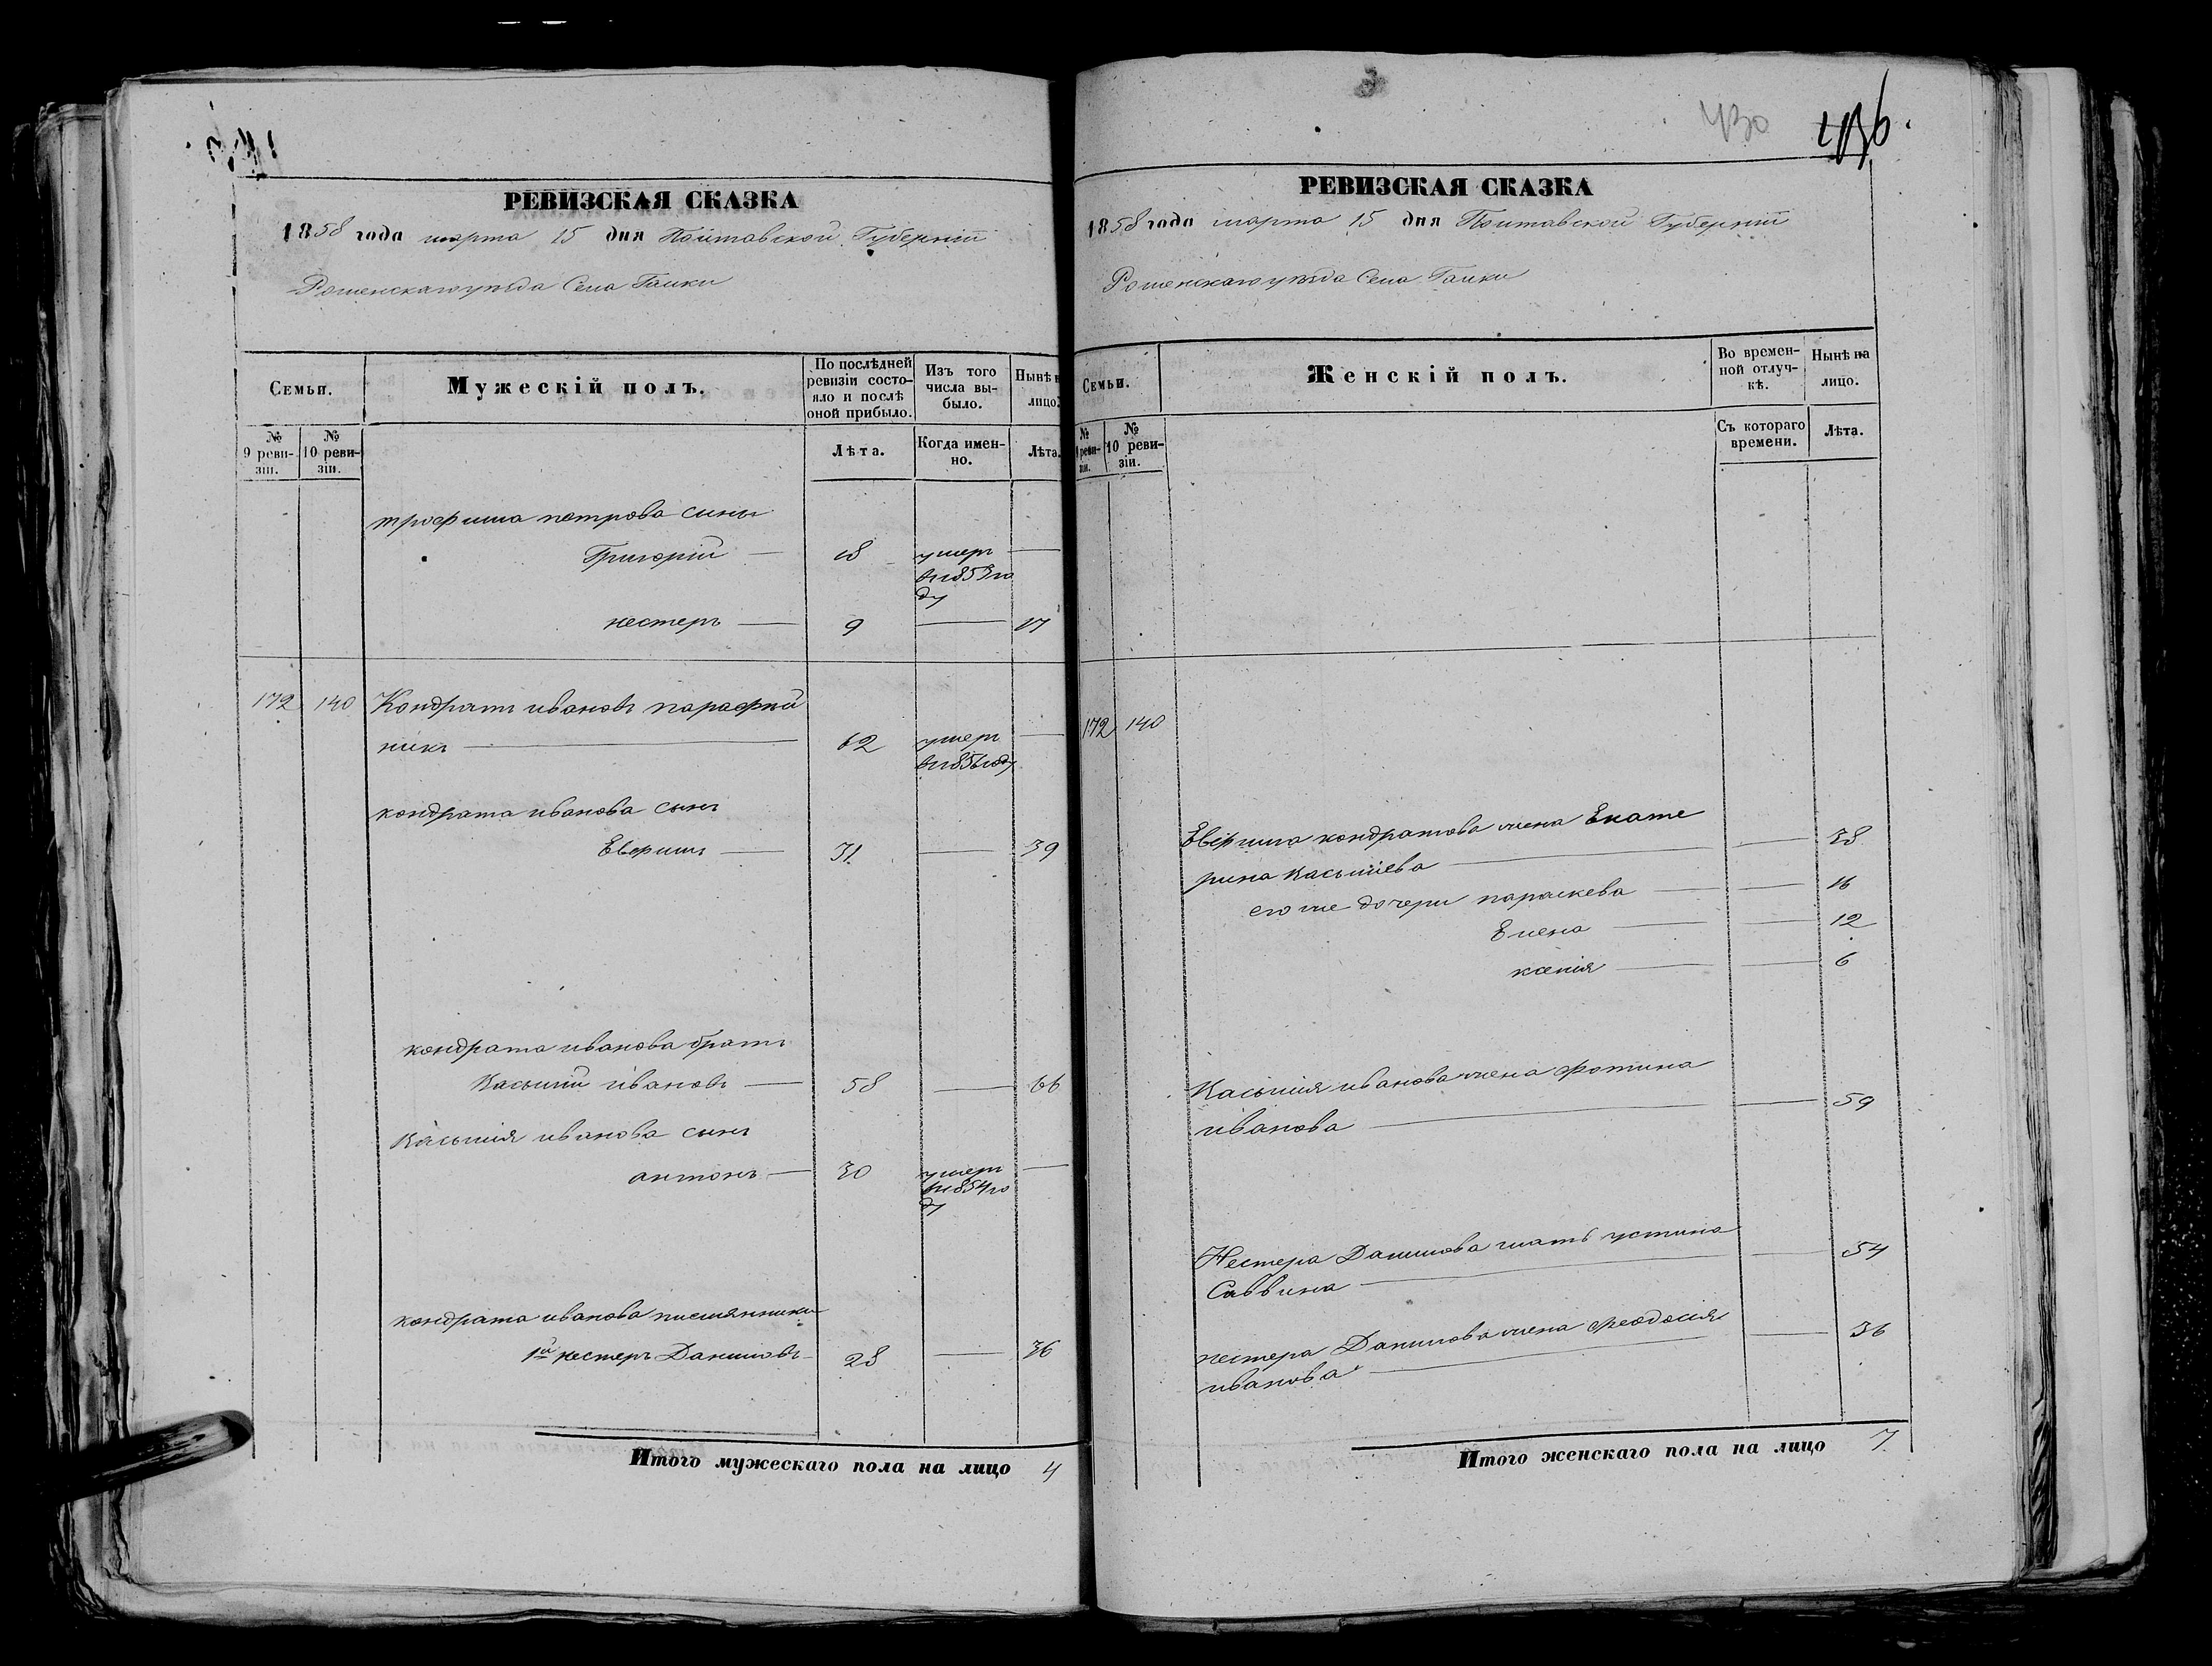 РЕВИЗСКАЯ СКАЗКА
1858 года марта 15 дня Полтавской Губерніи
Роменскаго уѣзда Села Галки
Семьи.
Мужескій полъ.
По послѣдней ревизіи состо-
яло и послѣ
оной прибыло.
Изъ того
числа вы-
было.
Нынѣ н
лицо.
№
9 реви-
зіи.
№
10 реви-
зіи.
Лѣта.
Когда имен-
но.
Лѣта.
трофима петрова сыны
Григорій — 18 умеръ —
въ 1853 го
ду
нестеръ — 9 — 17
172 140 Кондратъ ивановъ парафій
никъ — 62 умеръ —
въ 1856 году
кондрата иванова сынъ
Евфимъ — 31. — 39
кондрата иванова братъ
Касьяній ивановъ — 58 — 66
иванова сынъ
антонъ — 30 умеръ —
въ 1854 го
ду
кондрата иванова племянники
1й нестеръ Даниловъ — 28 — 36
Итого мужескаго пола на лицо 4
430 436.
РЕВИЗСКАЯ СКАЗКА
1858 года марта 15 дня Полтавской Губерніи
Роменскаго уѣзда Села Галки
Семьи.
Женскій полъ.
Во времен-
ной отлуч-
кѣ.
Нынѣ на
лицо.
№
9 реви-
зіи.
№
10 реви-
зіи.
Съ котораго
времени.
Лѣта.
172 140
Евфима кондратова жена Екате
рина — — 38
его же дочери параскева — — 16
Елена — — 12
ксенія — — 6
иванова жена фотина
иванова — — 59
Нестера Данилова мать устина
Саввина — — 54
нестера Данилова жена феодосія
иванова — — 36
Итого женскаго пола на лицо 7